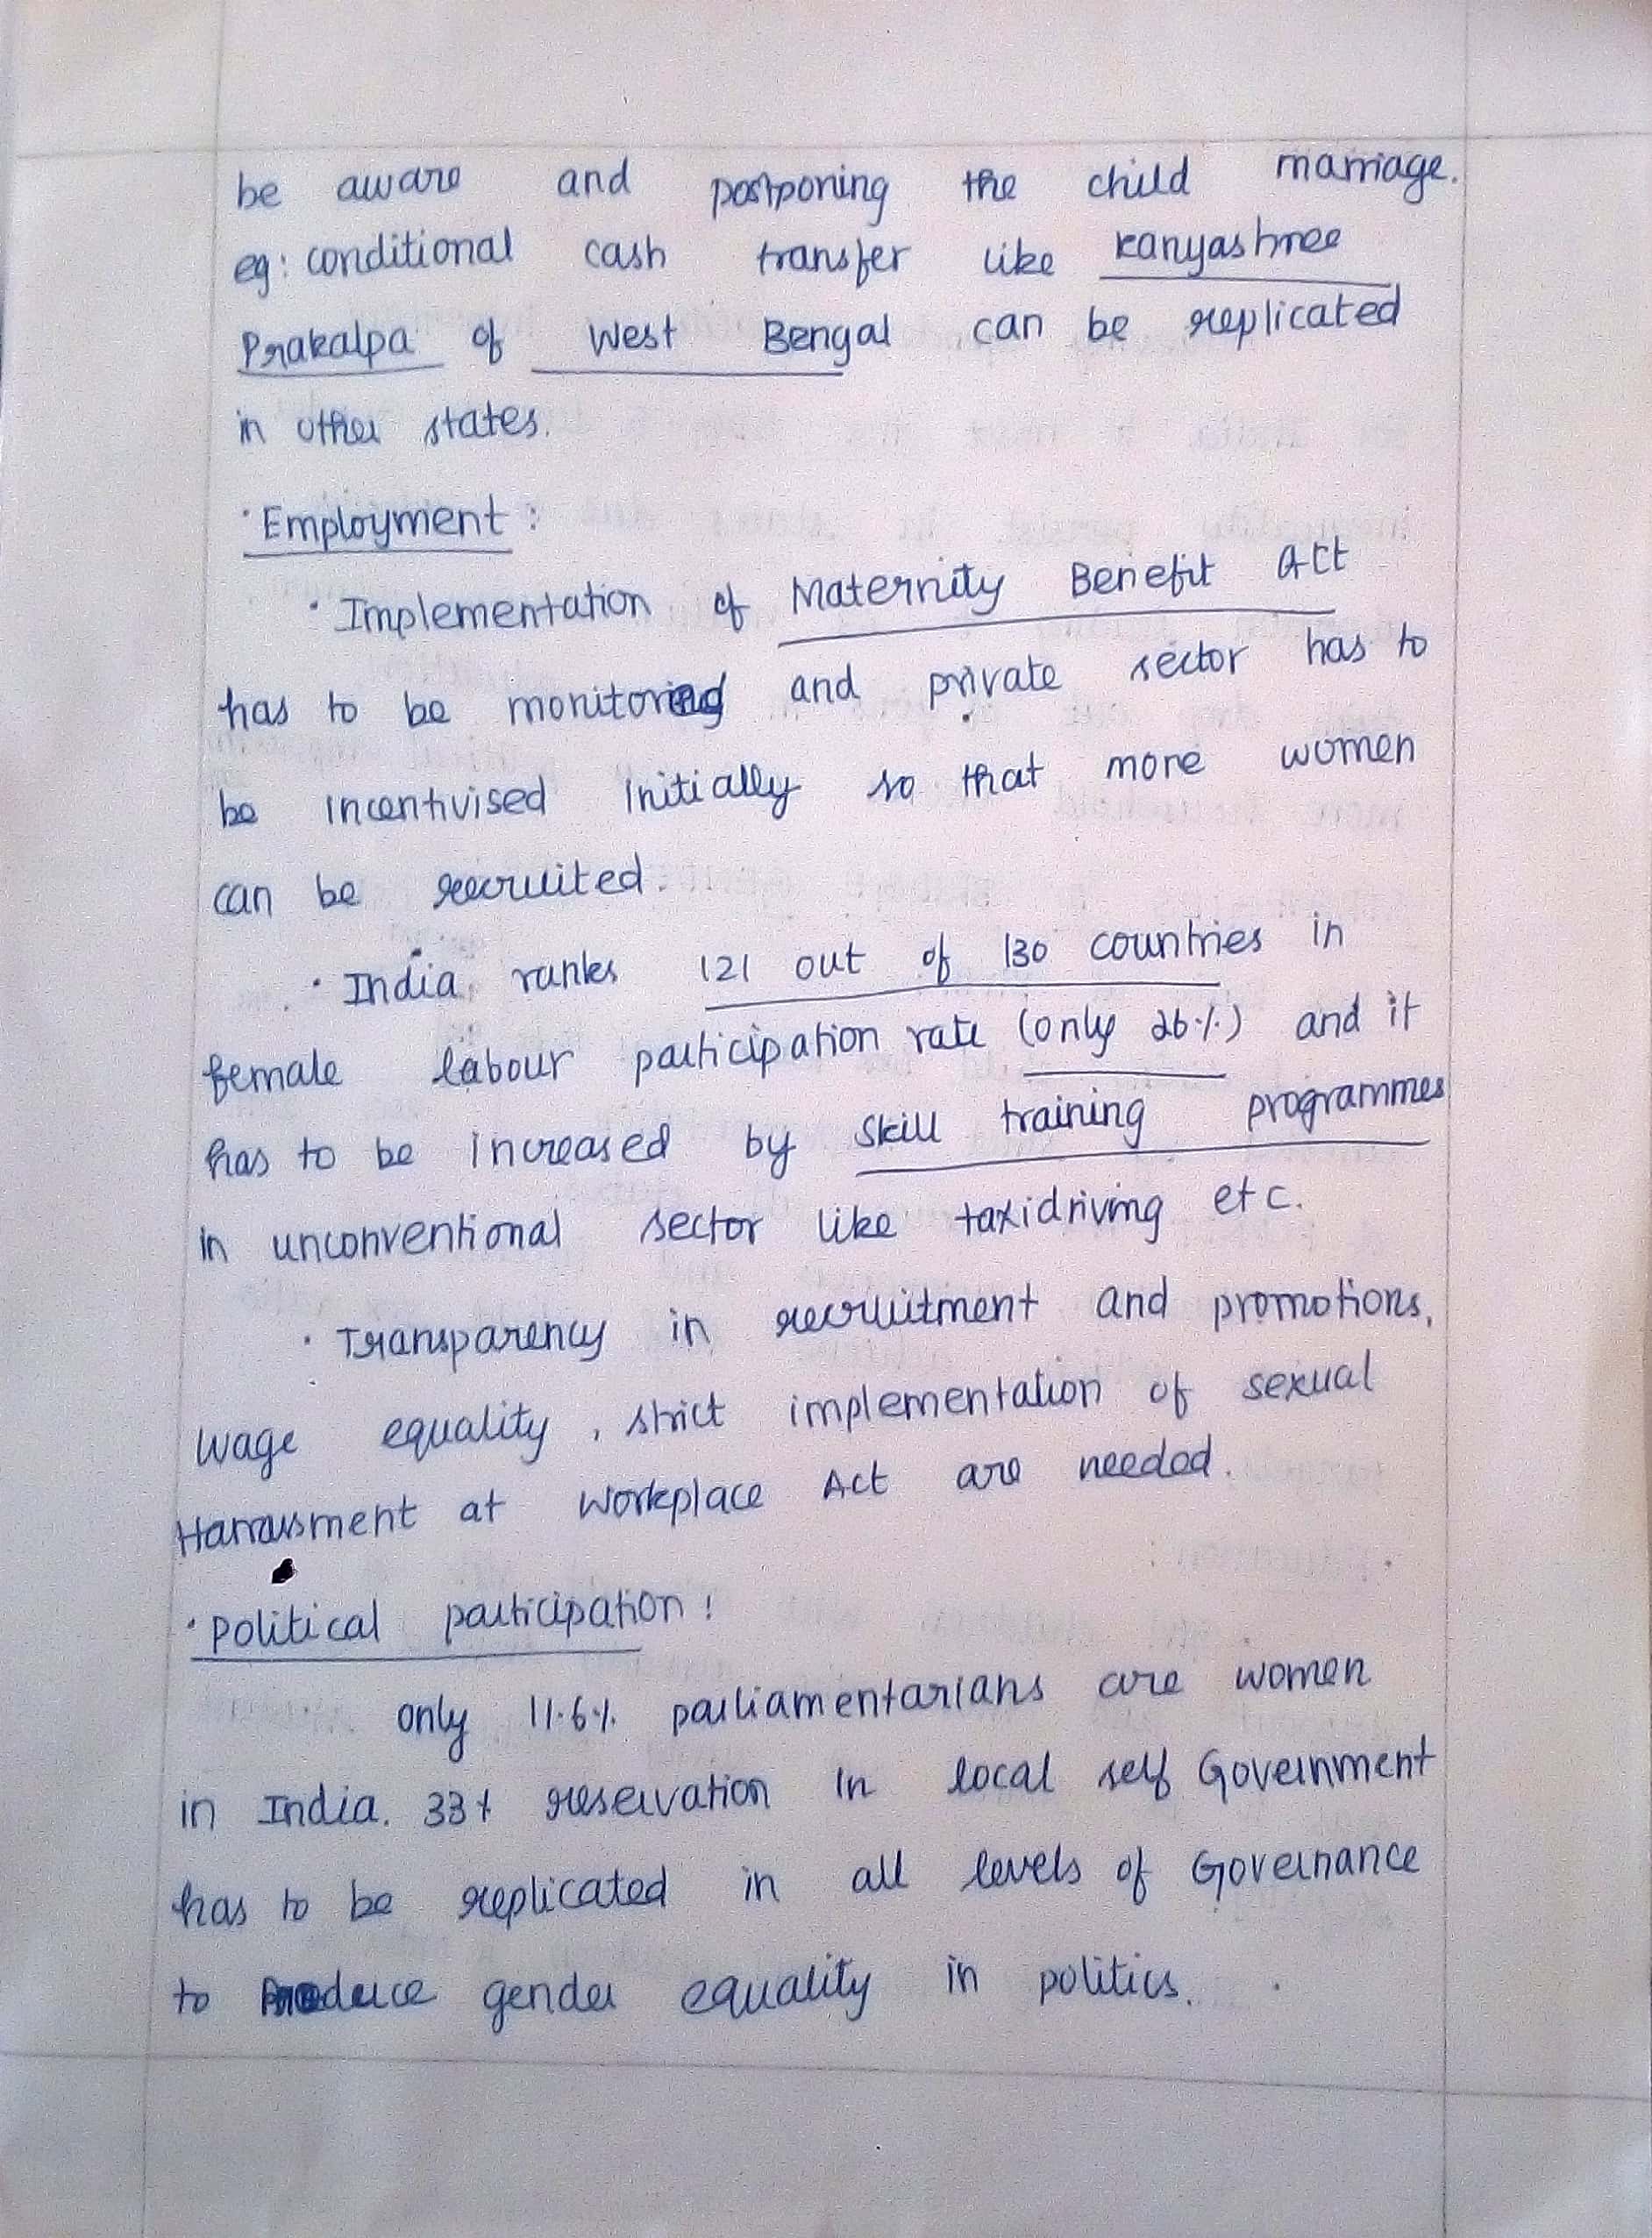 be aware and postponing the child marriage.
eg: conditional cash transfer like Kanyashree
Prakalpa of West Bengal can be replicated
in other states.
· Employment :
· Implementation of Maternity Benefit Act
has to be monitored and private sector has to
be incentivised initially so that more women
can be recruited.
· India ranks 121 out of 130 countries in
female labour participation rate (only 26%) and it
has to be increased by skill training programmes
in unconventional sector like taxidriving etc.
· Transparency in recruitment and promotions,
wage equality, strict implementation of sexual
Harrasment at Workplace Act are needed.
· Political participation :
only 11.6% parliamentarians are women
in India. 33% reservation in local self Government
has to be replicated in all levels of Governance
to produce gender equality in politics.